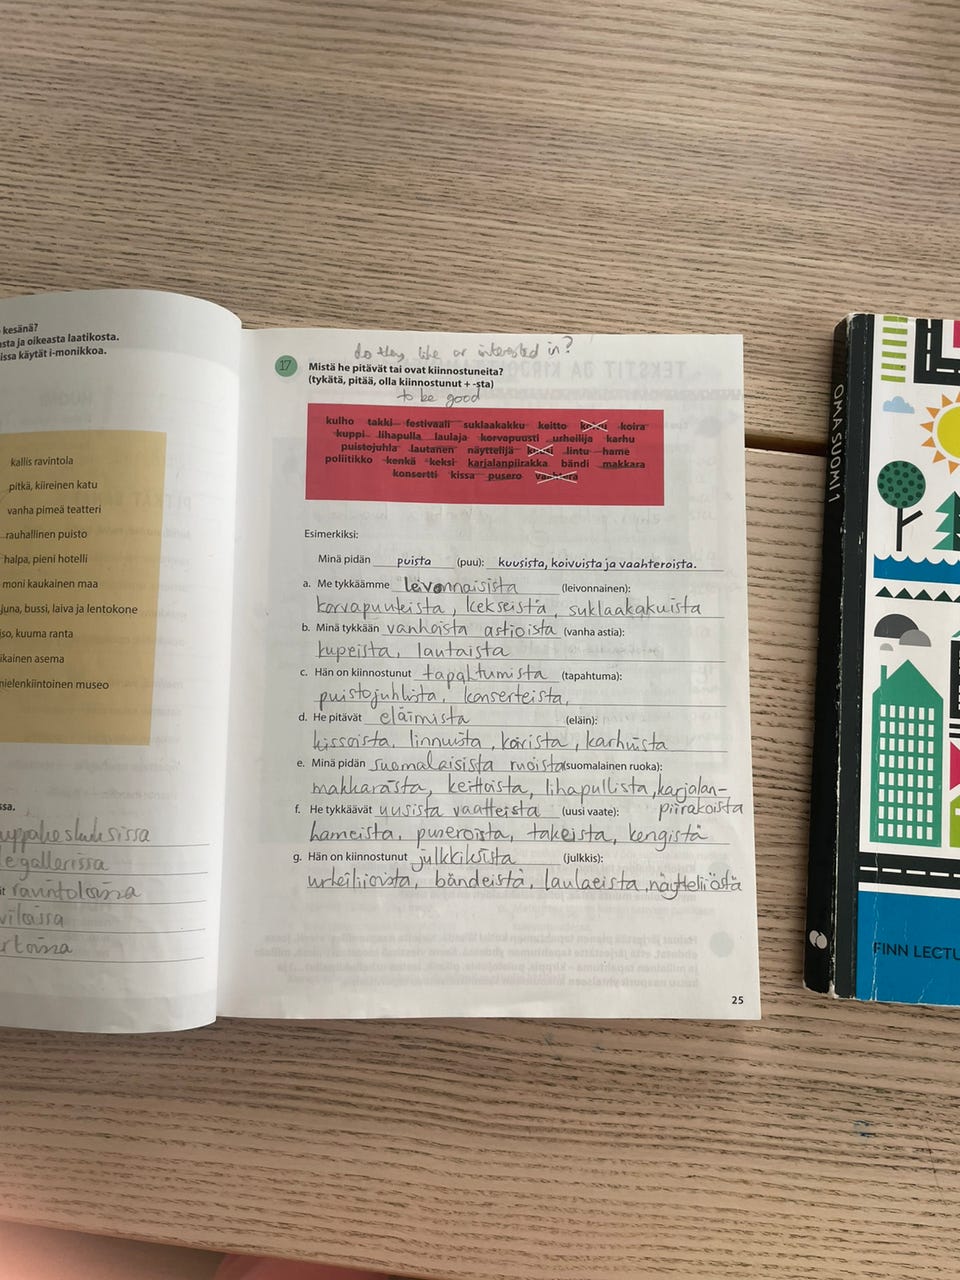 kesänä?
sta ja oikeasta laatikosta.
issa käytät i-monikkoa.
kallis ravintola
pitkä, kiireinen katu
vanha pimeä teatteri
rauhallinen puisto
halpa, pieni hotelli
moni kaukainen maa
juna, bussi, laiva ja lentokone
iso, kuuma ranta
ikainen asema
nielenkiintoinen museo
ssa.
ravintoloissa
do they like or interested in?
17
Mistä he pitävät tai ovat kiinnostuneita?
(tykätä, pitää, olla kiinnostunut + -sta)
to be good
kulho takki festivaali suklaakakku keitto koivu koira
kuppi lihapulla laulaja korvapuusti urheilija karhu
puistojuhla lautanen näyttelijä kuusi lintu hame
poliitikko kenkä keksi karjalanpiirakka bändi makkara
konsertti kissa pusero vaahtera
Esimerkiksi:
Minä pidän puista (puu): kuusista, koivuista ja vaahteroista.
a. Me tykkäämme leivonnaisista (leivonnainen):
korvapuuteista, kekseistä, suklaakakuista
b. Minä tykkään vanhoista astioista (vanha astia):
kupeista, lautaista
c. Hän on kiinnostunut tapahtumista (tapahtuma):
puistojuhlista, konserteista,
d. He pitävät eläimista (eläin):
kissoista, linnuista, koirista, karhuista
e. Minä pidän suomalaisista ruoista (suomalainen ruoka):
makkarasta, keittoista, lihapullista, karjalan-
piirakoista
f. He tykkäävät uusista vaatteista (uusi vaate):
hameista, puseroista, takeista, kengistä
g. Hän on kiinnostunut julkkiksista (julkkis):
urheilijoista, bändeistä, laulaeista, näytteliöstä
25
OMA SUOMI 1
FINN LECTU